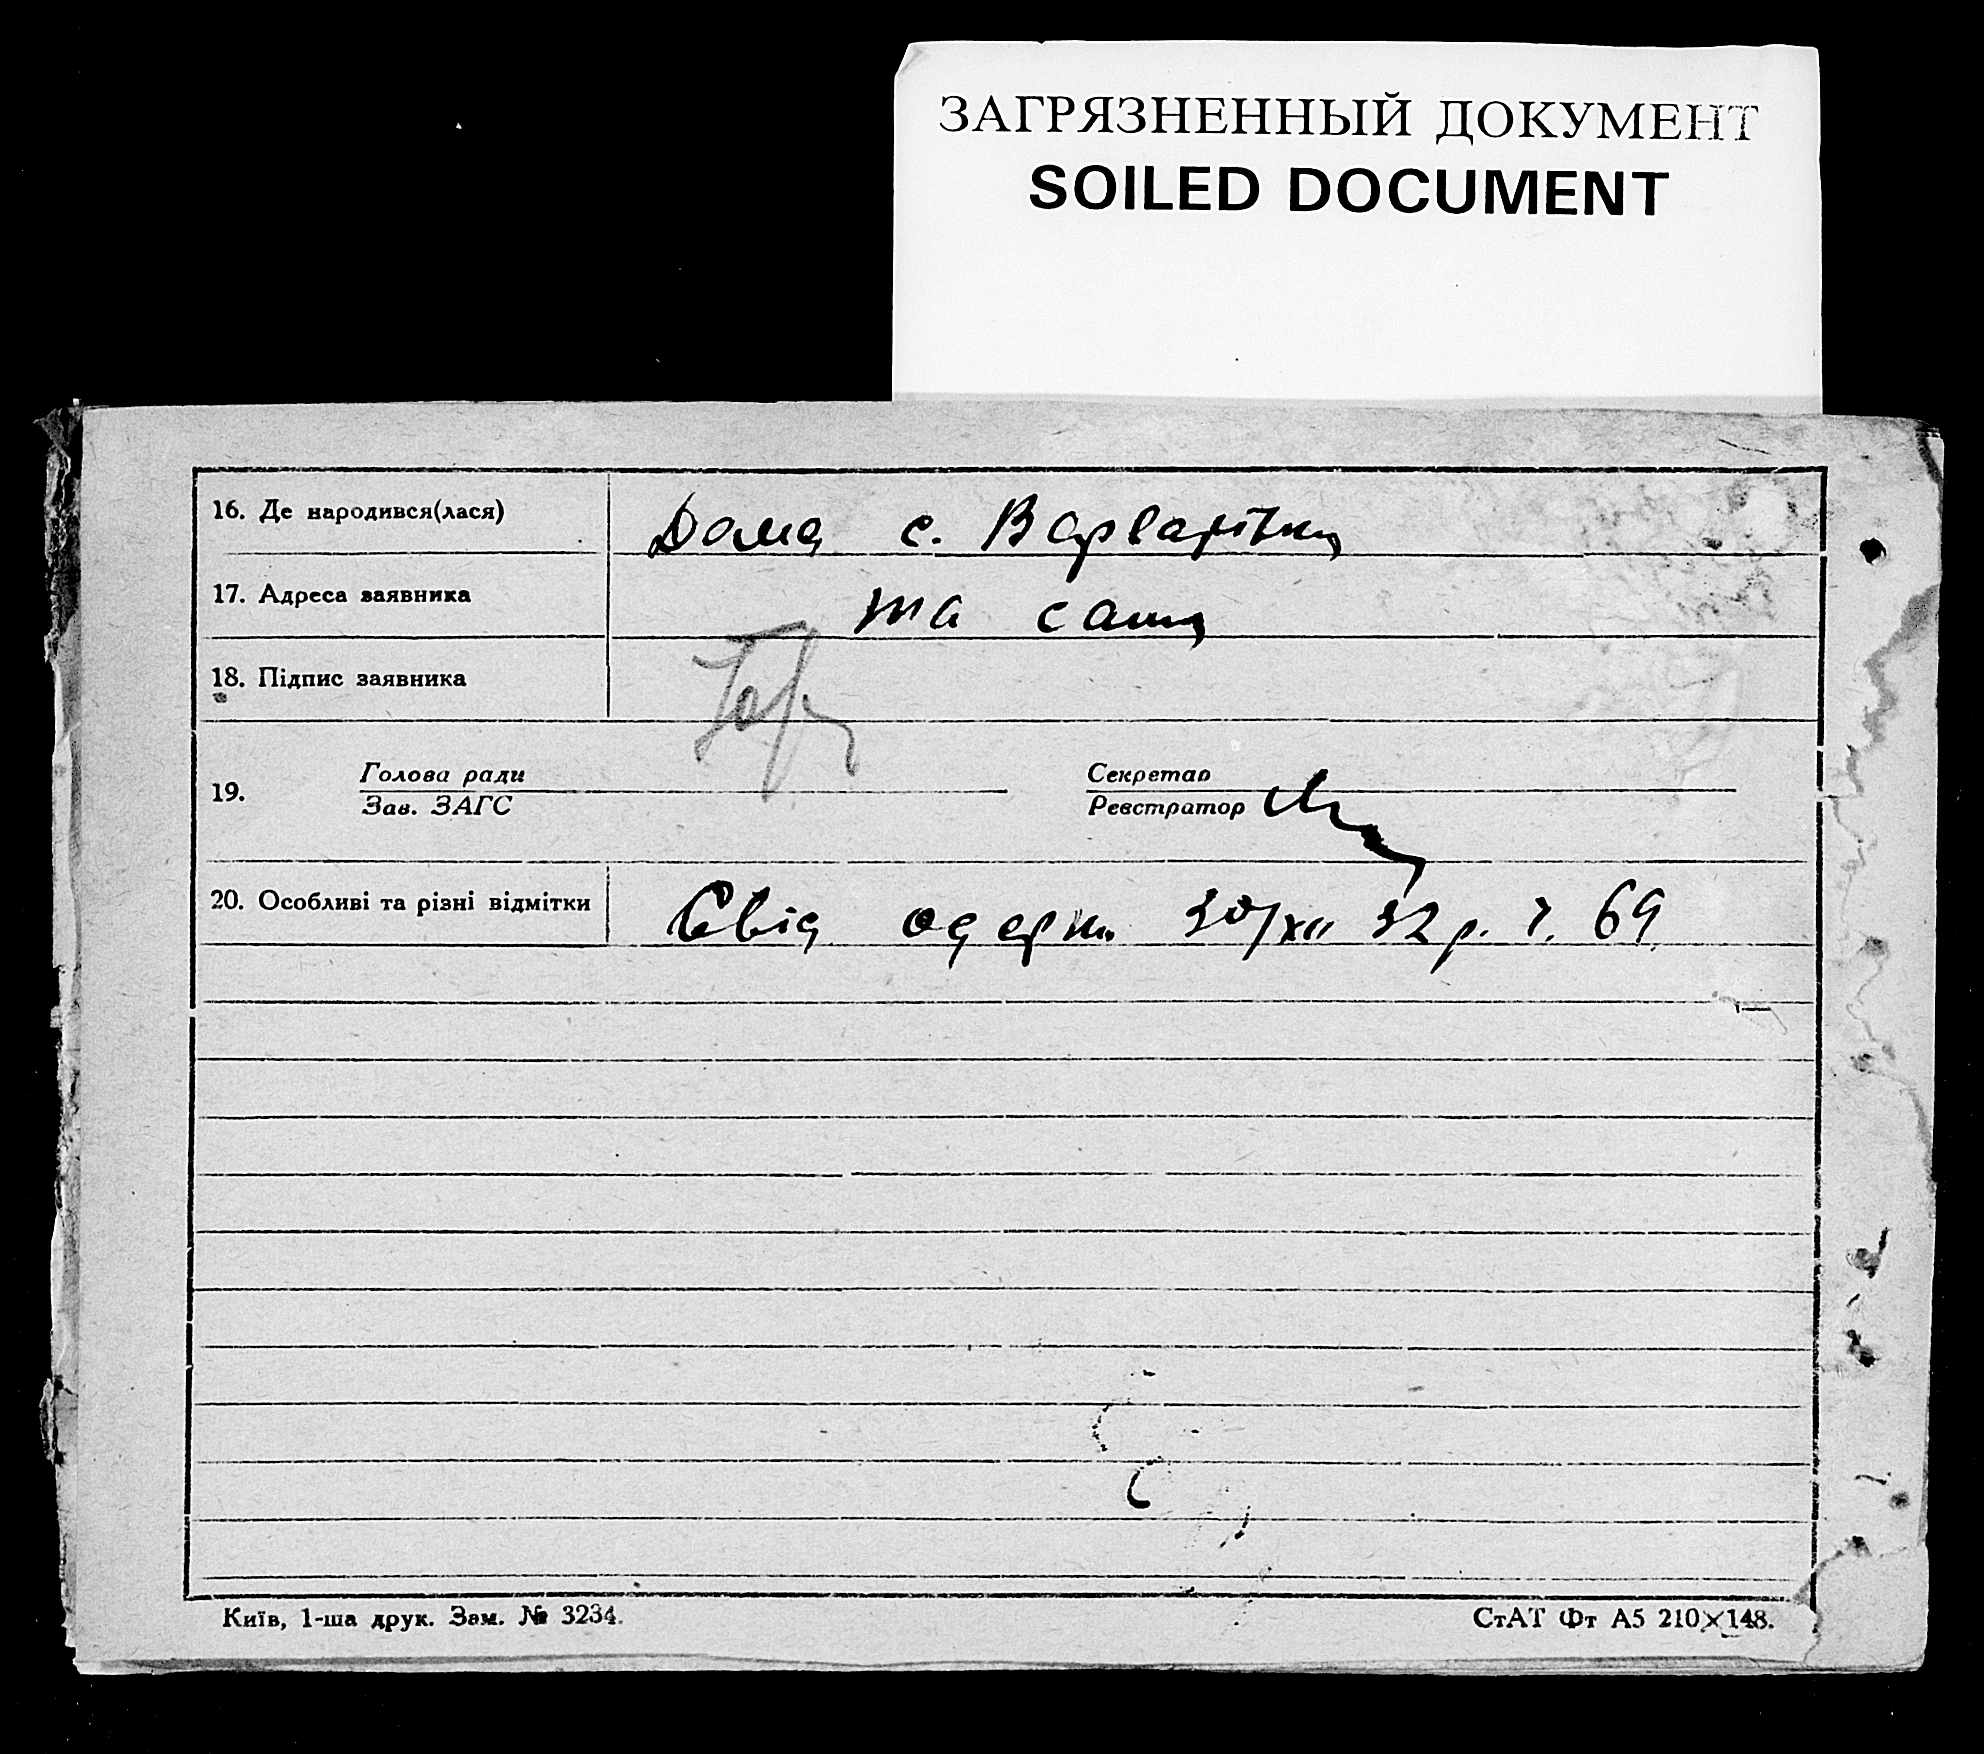 ЗАГРЯЗНЕННЫЙ ДОКУМЕНТ
SOILED DOCUMENT
16. Де народився(лася) Дома с. Варварівка
17. Адреса заявника та сама
18. Підпис заявника
19. Голова ради Секретар
Зав. ЗАГС Реєстратор
20. Особливі та різні відмітки Свід одерж. 30/XII 32 р. 69
Київ, 1-ша друк. Зам. № 3234.
СтАТ Фт А5 210×148.